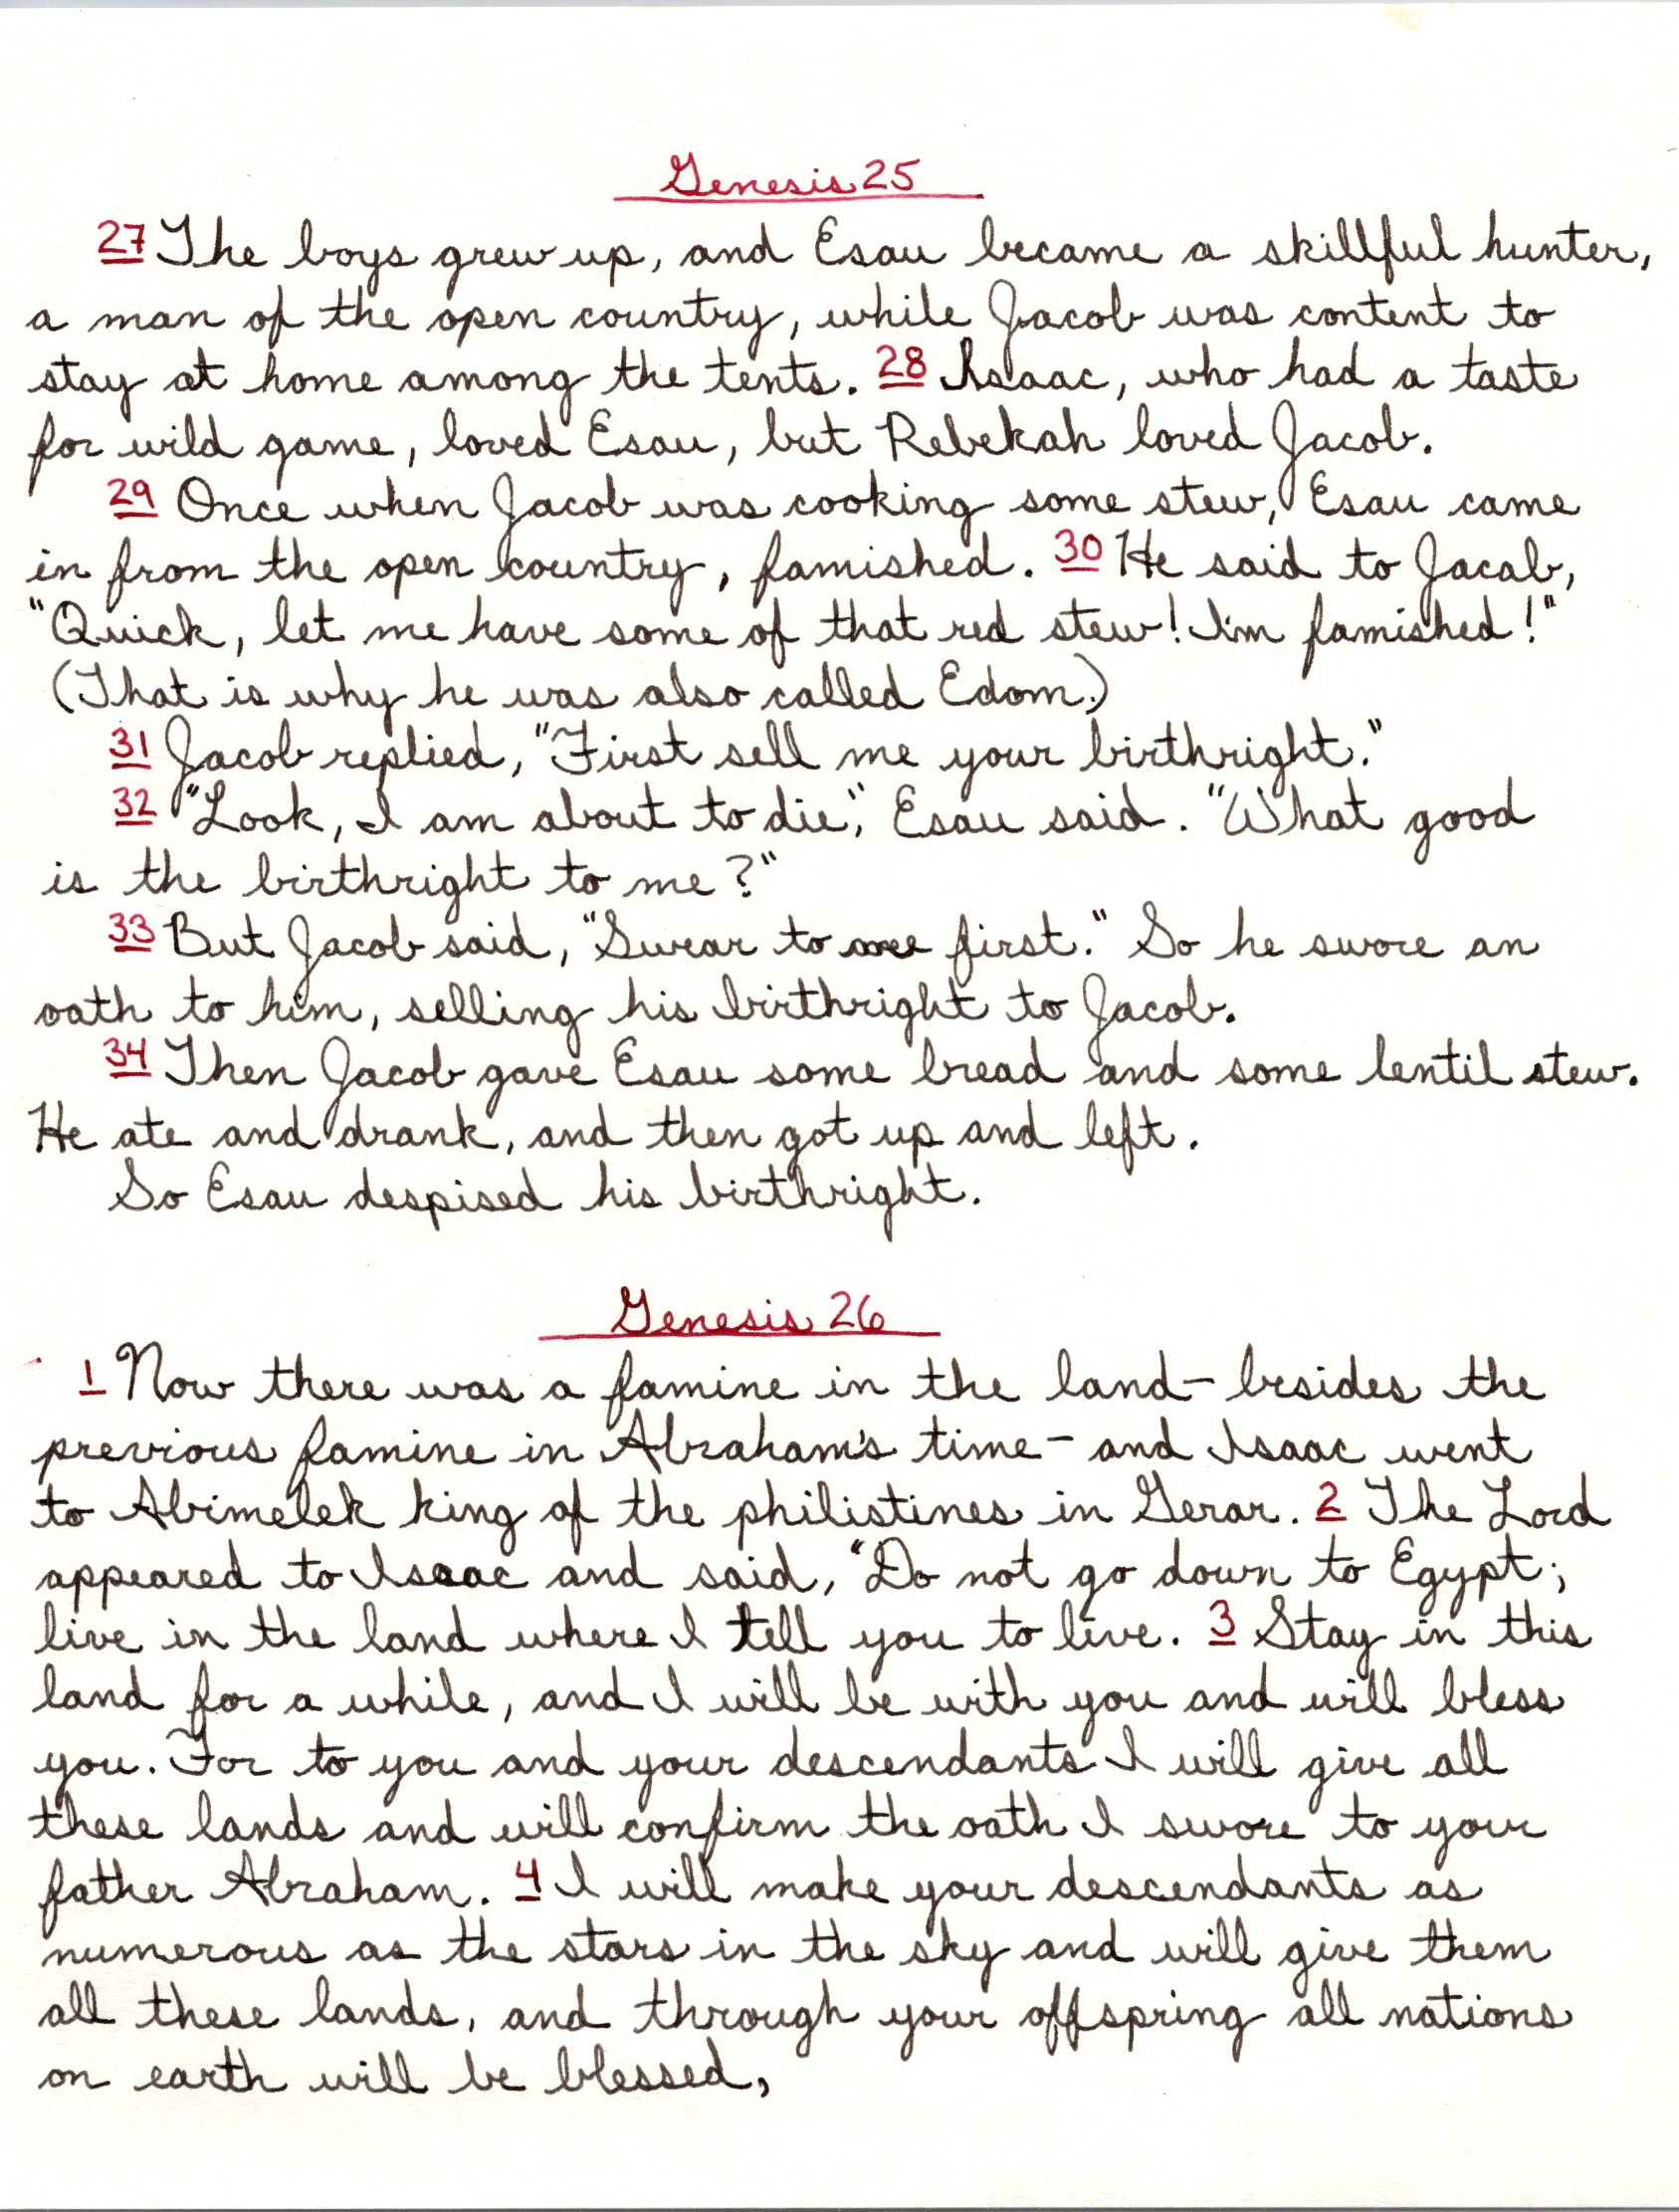 Genesis 25
27 The boys grew up, and Esau became a skillful hunter,
a man of the open country, while Jacob was content to
stay at home among the tents. 28 Isaac, who had a taste
for wild game, loved Esau, but Rebekah loved Jacob.
29 Once when Jacob was cooking some stew, Esau came
in from the open country, famished. 30 He said to Jacab,
"Quick, let me have some of that red stew! I'm famished!"
(That is why he was also called Edom.)
31 Jacob replied, "First sell me your birthright."
32 "Look, I am about to die," Esau said. "What good
is the birthright to me?"
33 But Jacob said, "Swear to me first." So he swore an
oath to him, selling his birthright to Jacob.
34 Then Jacob gave Esau some bread and some lentil stew.
He ate and drank, and then got up and left.
So Esau despised his birthright.
Genesis 26
1 Now there was a famine in the land- besides the
previous famine in Abraham's time- and Isaac went
to Abimelek king of the philistines in Gerar. 2 The Lord
appeared to Isaac and said, "Do not go down to Egypt;
live in the land where I tell you to live. 3 Stay in this
land for a while, and I will be with you and will bless
you. For to you and your descendants I will give all
these lands and will confirm the oath I swore to your
father Abraham. 4 I will make your descendants as
numerous as the stars in the sky and will give them
all these lands, and through your offspring all nations
on earth will be blessed,